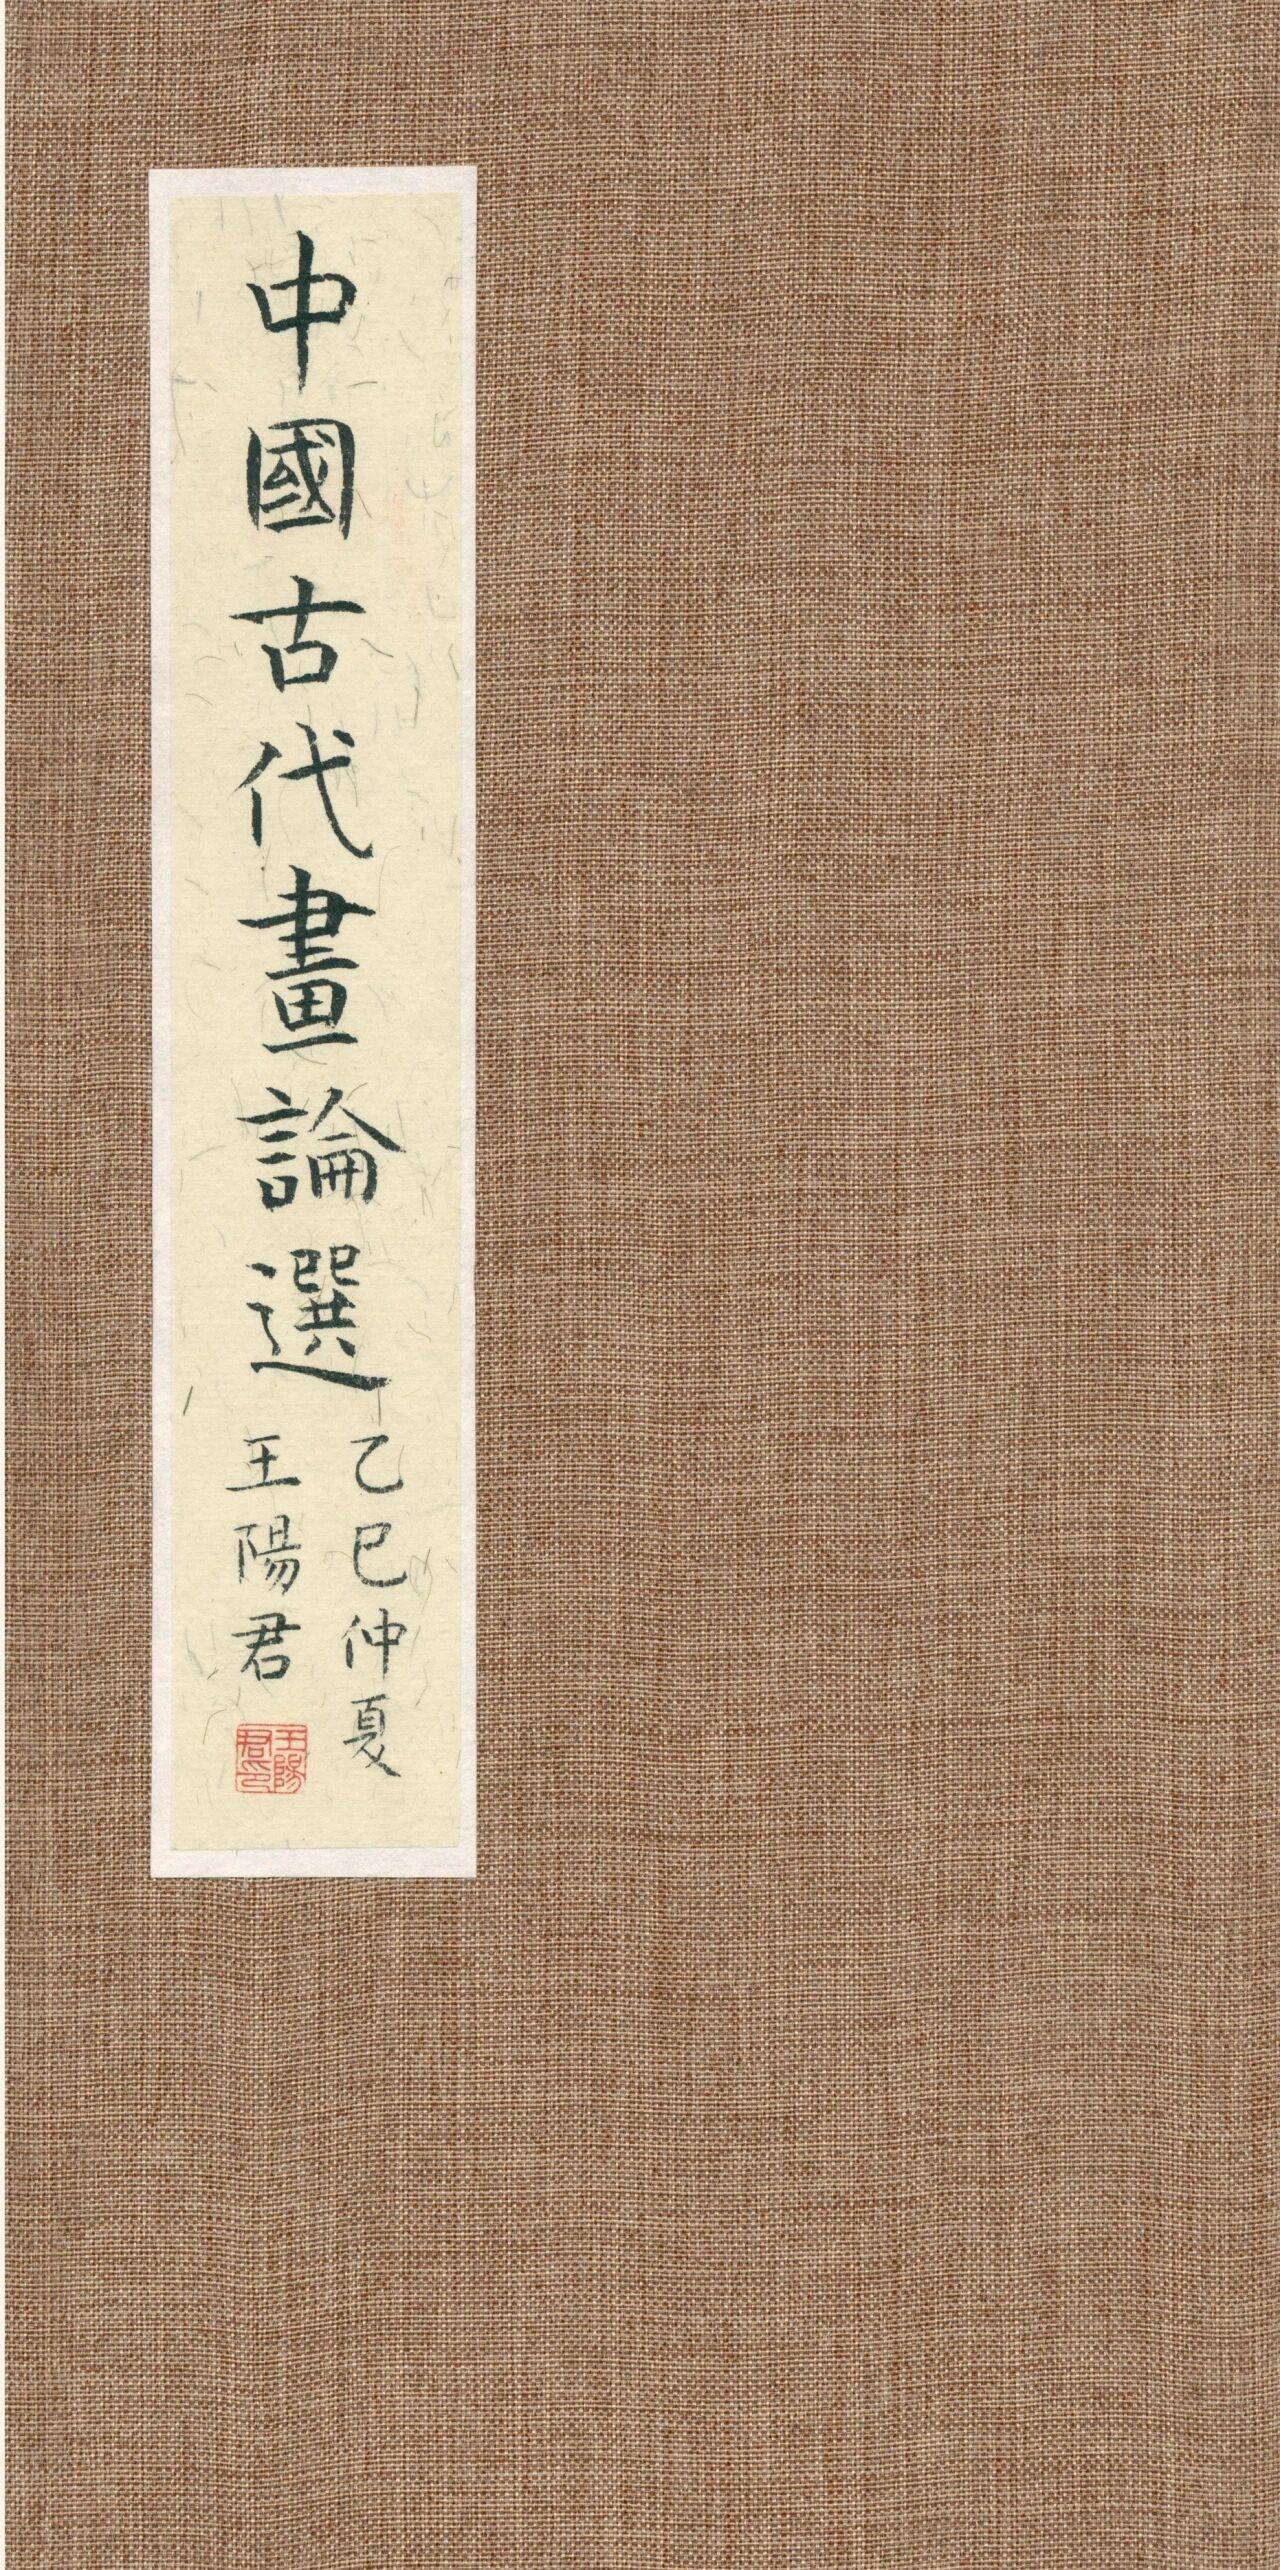 中國古代畫論選
乙巳仲夏
王陽君
王陽
君印